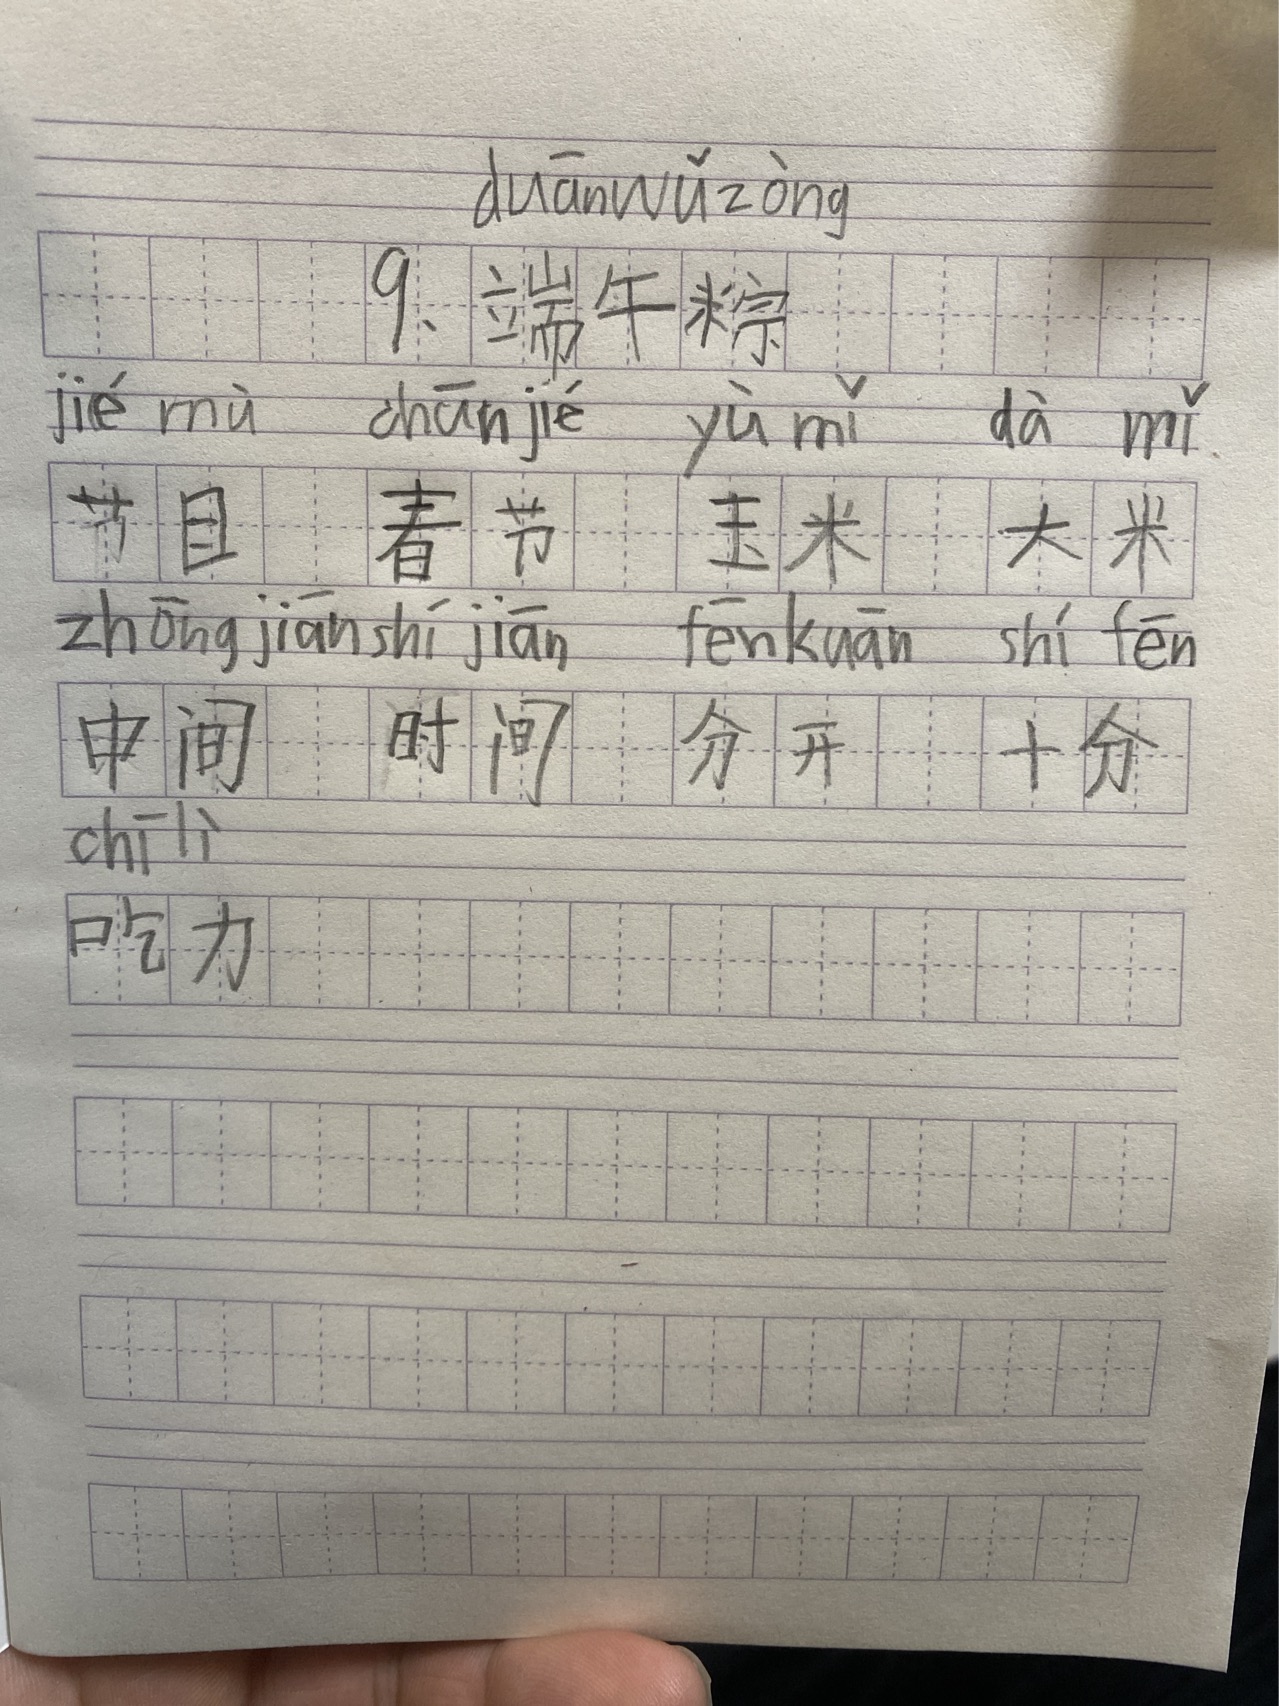 duānwǔzòng
9、端午粽
jié mù chūnjié yù mǐ dà mǐ
节目 春节 玉米 大米
zhōngjiān shí jiān fēnkuān shí fēn
中间 时间 分开 十分
chī lì
吃力